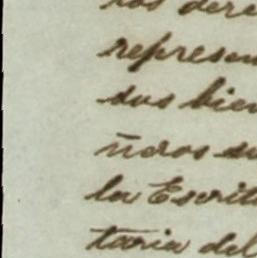 los dere
represen
sus bien
ñeros su
la Escrit
taria del